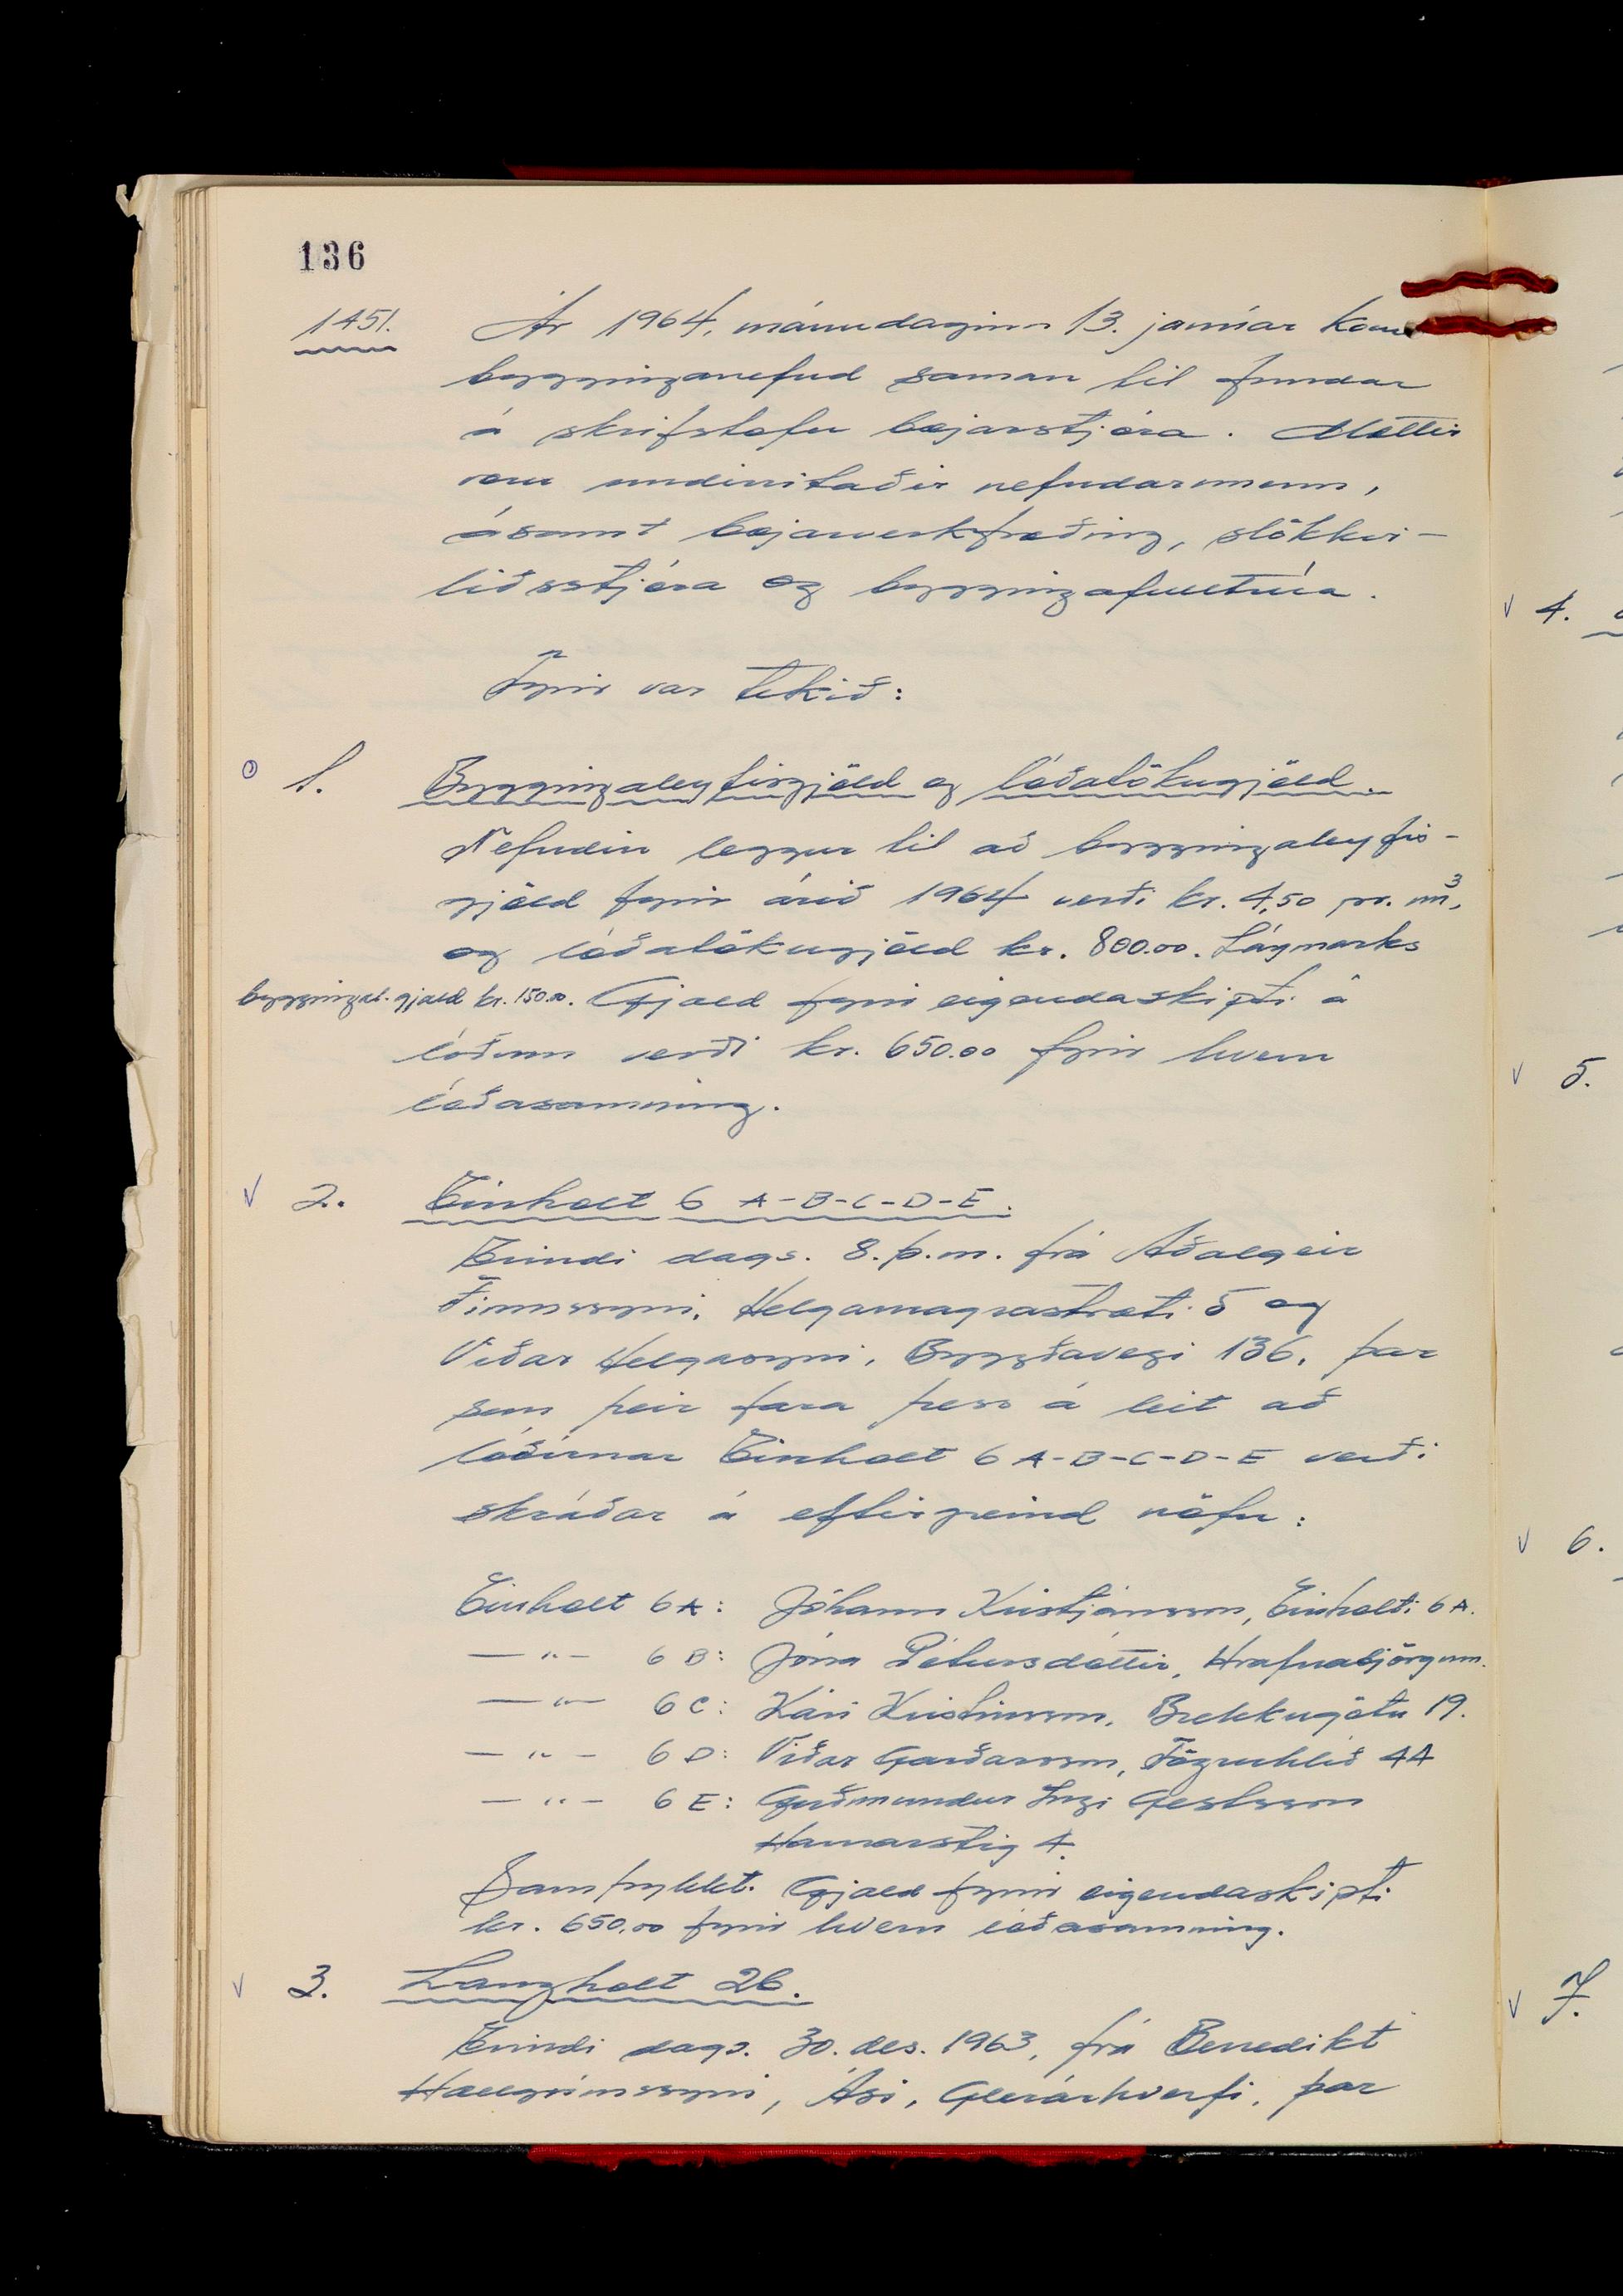 136
1451. Ár 1964, mánudaginn 13. janúar kom
bygginganefnd saman til fundar
á skrifstofu bæjarstjóra. Mættir
voru undirritaðir nefndarmenn,
ásamt bæjarverkfræðing, slökkvi-
liðsstjóra og byggingafulltrúa.
Fyrir var tekið:
1. Byggingaleyfisgjöld og lóðatökugjöld.
Nefndin leggur til að byggingaleyfis-
gjöld fyrir árið 1964 verði kr. 4,50 pr. m³,
og lóðatökugjöld kr. 800.00. Lágmarks
byggingal. gjald kr. 150.00. Gjald fyrir eigendaskipti á
lóðum verði kr. 650.00 fyrir hvern
lóðasamning.
v 2. Einholt 6 A-B-C-D-E.
Erindi dags. 8. þ.m. frá Aðalgeir
Finnssyni, Helgamagrastræti 5 og
Viðar Helgasyni, Byggðavegi 136, þar
sem þeir fara þess á leit að
lóðirnar Einholt 6 A-B-C-D-E verði
skráðar á eftirgreind nöfn:
Einholt 6A: Jóhann Kristjánsson, Einholti 6A.
— " — 6B: Jóna Pétursdóttir, Hrafnabjörgum.
— " — 6C: Kári Kristinsson, Brekkugötu 19.
— " — 6D: Viðar Garðarsson, Fögruhlíð 4A
— " — 6E: Guðmundur Ingi Gestsson
Hamarstíg 4.
Samþykkt. Gjald fyrir eigendaskipti
kr. 650,00 fyrir hvern lóðasamning.
v 3. Langholt 26.
Erindi dags. 30. des. 1963, frá Benedikt
Hallgrímssyni, Ási, Glerárhverfi, þar
v 4.
v 5.
v 6.
v 7.